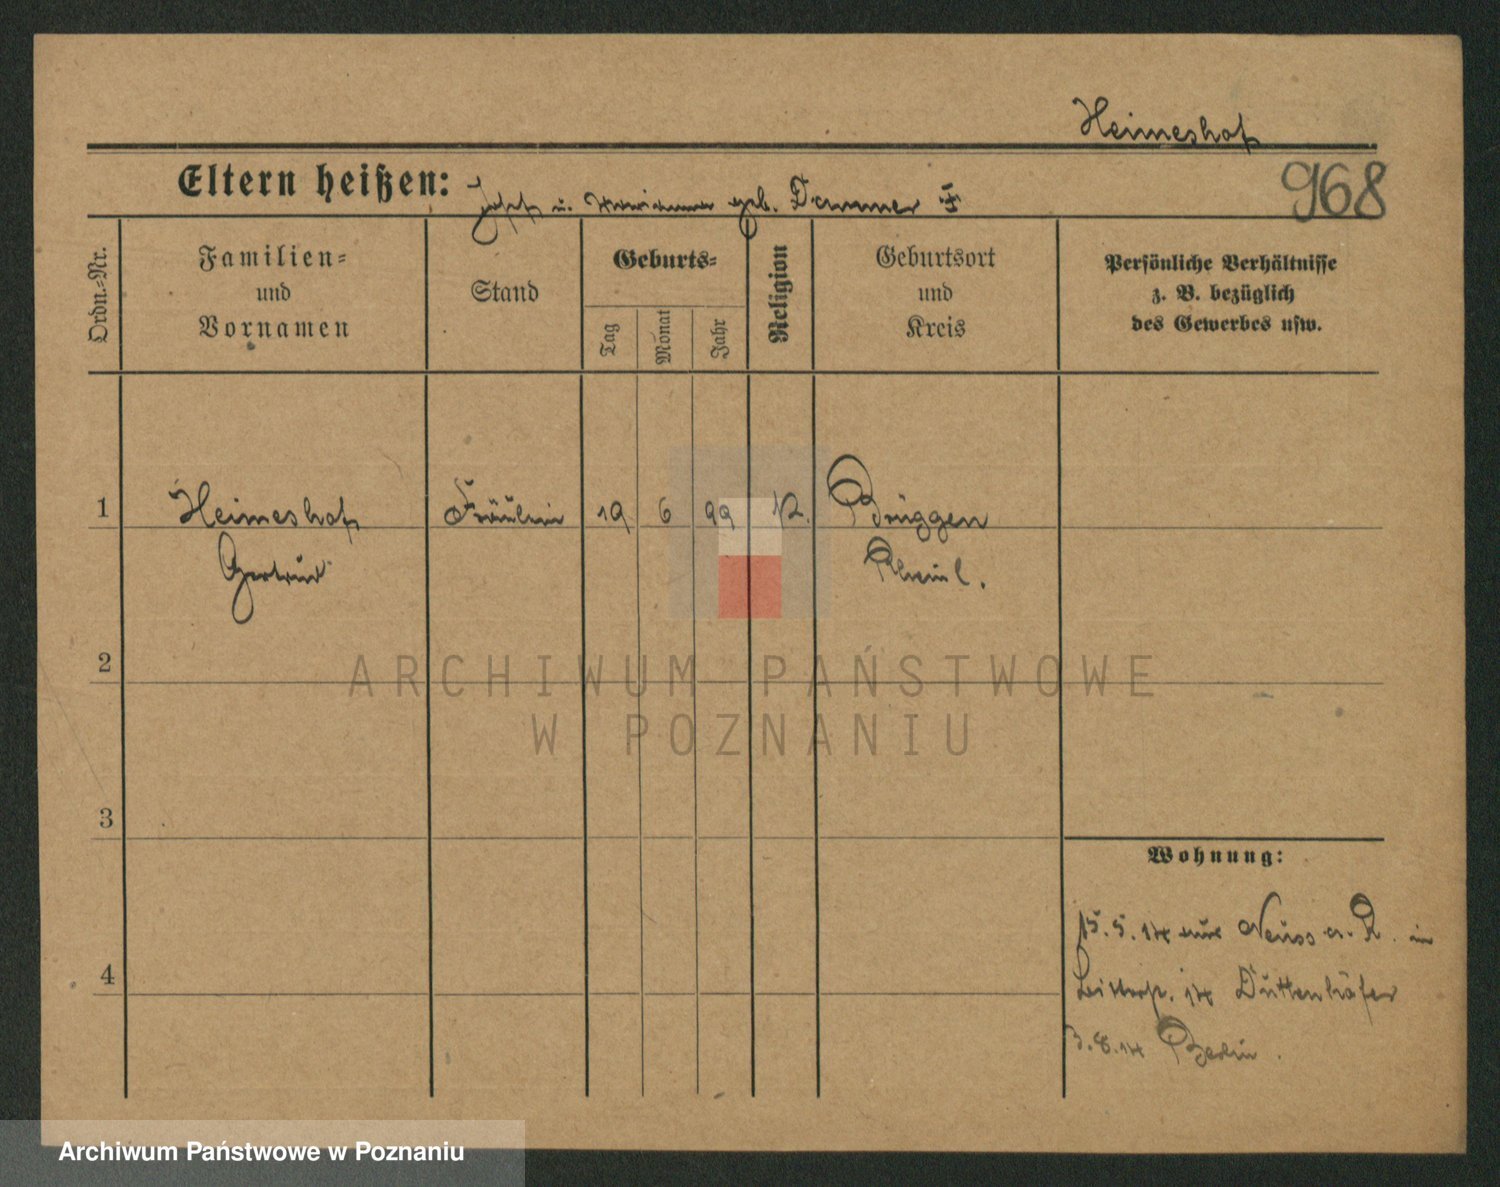 Heimeshof
Eltern heißen: Josef u. Marianna geb. Dammer
968
Ordn.-Nr.
Familien-
und
Vornamen
Stand
Geburts-
Tag
Monat
Jahr
Religion
Geburtsort
und
Kreis
Persönliche Verhältnisse
z. B. bezüglich
des Gewerbes usw.
1 Heimeshof Fräulein 19 6 99 Brüggen
Gertrud Rheinl.
2
ARCHIWUM PAŃSTWOWE
W POZNANIU
3
Wohnung:
15.5.14 aus Neuss a. R. in
4
14 Duttenhöfer
3.8.14 Berlin.
Archiwum Państwowe w Poznaniu